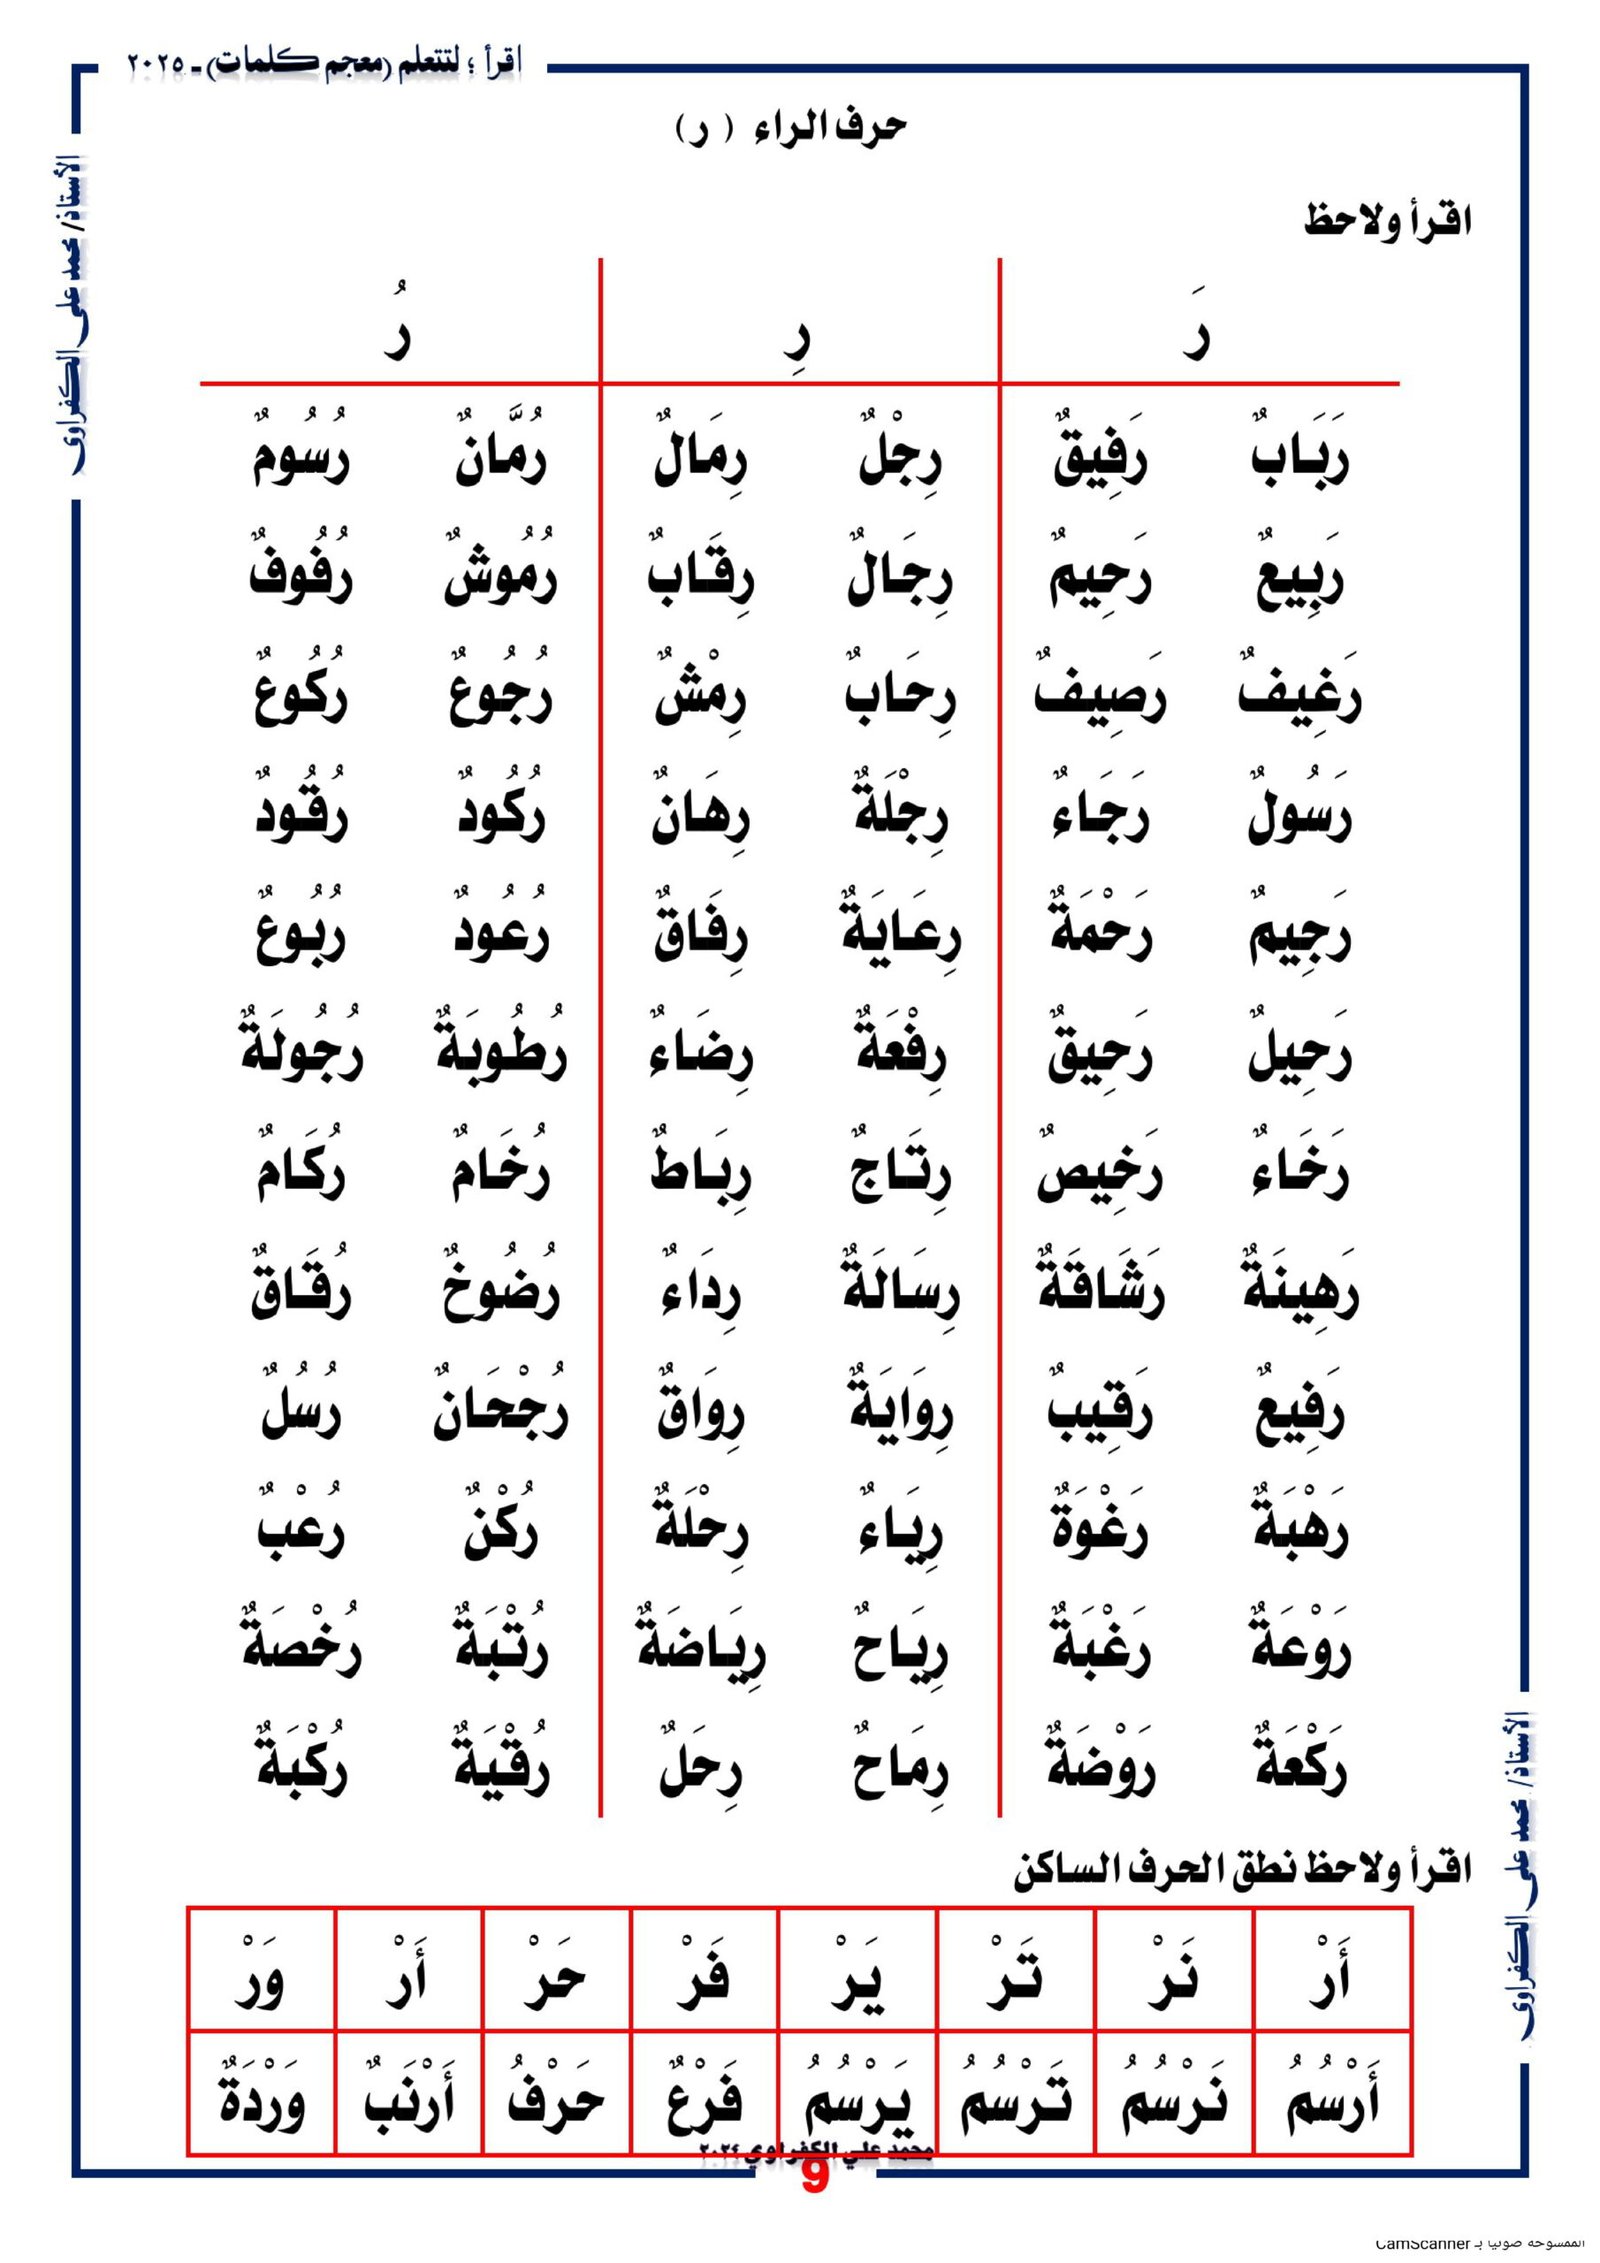 اقرأ ؛ لتتعلم (معجم كلمات) ـ ٢٠٢٥
حرف الراء ( ر )
الأستاذ/ محمد على الكفراوى
اقرأ ولاحظ
رَ رِ رُ
رَبَابٌ رَفِيقٌ رِجْلٌ رِمَالٌ رُمَّانٌ رُسُومٌ
رَبِيعٌ رَحِيمٌ رِجَالٌ رِقَابٌ رُمُوشٌ رُفُوفٌ
رَغِيفٌ رَصِيفٌ رِحَابٌ رِمْشٌ رُجُوعٌ رُكُوعٌ
رَسُولٌ رَجَاءٌ رِجْلَةٌ رِهَانٌ رُكُودٌ رُقُودٌ
رَجِيمٌ رَحْمَةٌ رِعَايَةٌ رِفَاقٌ رُعُودٌ رُبُوعٌ
رَحِيلٌ رَحِيقٌ رِفْعَةٌ رِضَاءٌ رُطُوبَةٌ رُجُولَةٌ
رَخَاءٌ رَخِيصٌ رِتَاجٌ رِبَاطٌ رُخَامٌ رُكَامٌ
رَهِينَةٌ رَشَاقَةٌ رِسَالَةٌ رِدَاءٌ رُضُوخٌ رُقَاقٌ
رَفِيعٌ رَقِيبٌ رِوَايَةٌ رِوَاقٌ رُجْحَانٌ رُسُلٌ
رَهْبَةٌ رَغْوَةٌ رِيَاءٌ رِحْلَةٌ رُكْنٌ رُعْبٌ
رَوْعَةٌ رَغْبَةٌ رِيَاحٌ رِيَاضَةٌ رُتْبَةٌ رُخْصَةٌ
رَكْعَةٌ رَوْضَةٌ رِمَاحٌ رِحَلٌ رُقْيَةٌ رُكْبَةٌ
الأستاذ/ محمد على الكفراوى
اقرأ ولاحظ نطق الحرف الساكن
أَرْ نَرْ تَرْ يَرْ فَرْ حَرْ أَرْ وَرْ
أَرْسُمُ نَرْسُمُ تَرْسُمُ يَرْسُمُ فَرْعٌ حَرْفُ أَرْنَبٌ وَرْدَةٌ
محمد علي الكفراوي ٢٠٢٤
9
الممسوحة ضوئيا بـ CamScanner